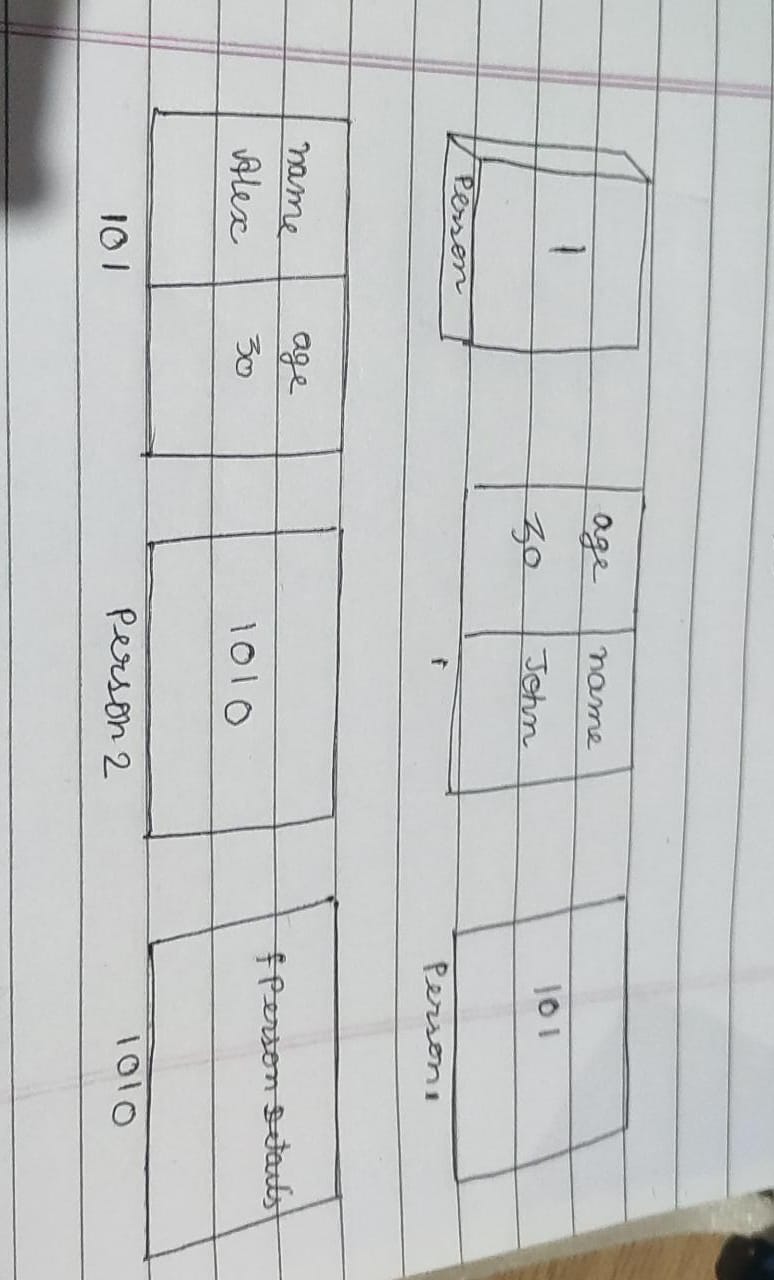 1
Person
age name
30 John
101
Person1
name age
Alex 30
101
1010
Person2
fPersonDetails
1010